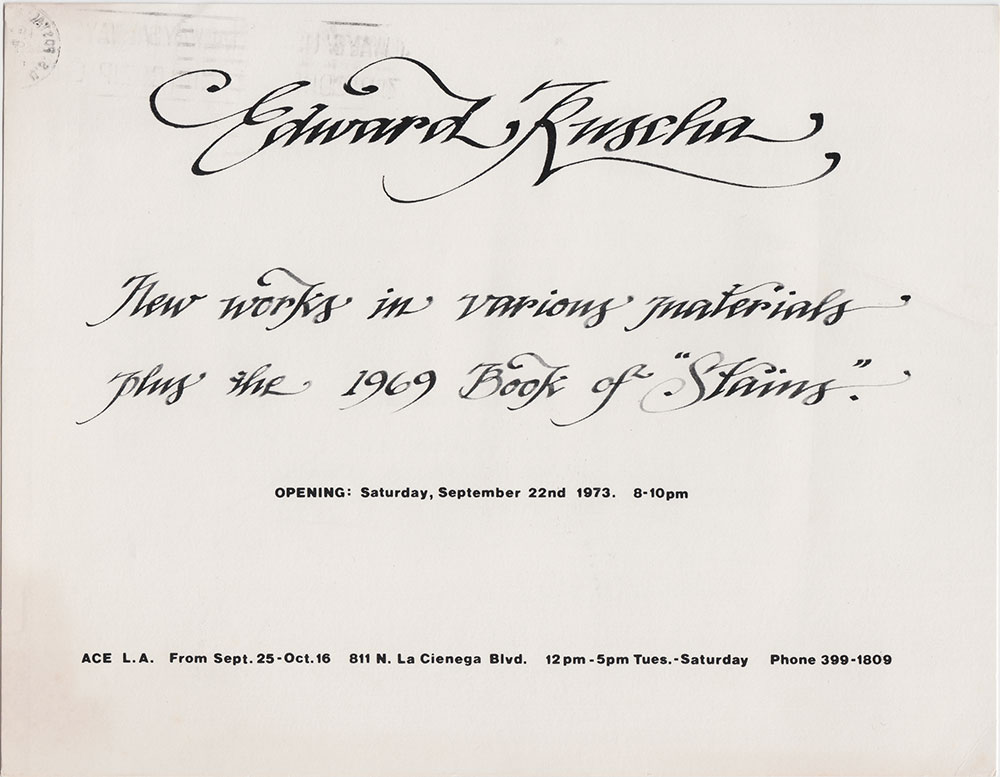 Edward Ruscha
New works in various materials
plus the 1969 Book of "Stains".
OPENING: Saturday, September 22nd 1973. 8-10pm
ACE L.A. From Sept. 25-Oct. 16 811 N. La Cienega Blvd. 12pm-5pm Tues.-Saturday Phone 399-1809